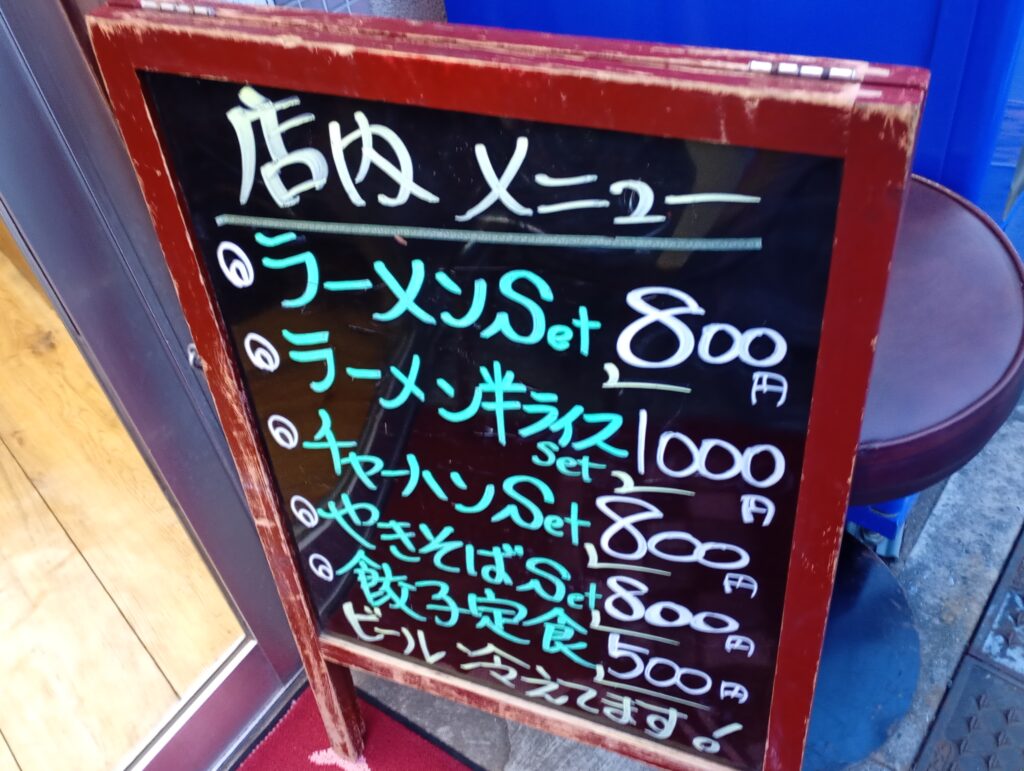 店内 メニュー
ラーメンSet 800円
ラーメン半ライスset 1000円
チャーハンSet 800円
やきそばSet 800円
餃子定食 500円
ビール 冷えてます!